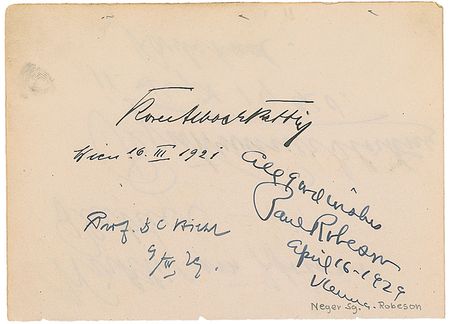 Wien 16. III 1921
All good wishes
Paul Robeson
April 16 - 1929
Vienna
Prof. D C
9/IV 29.
Neger Sg. a. Robeson